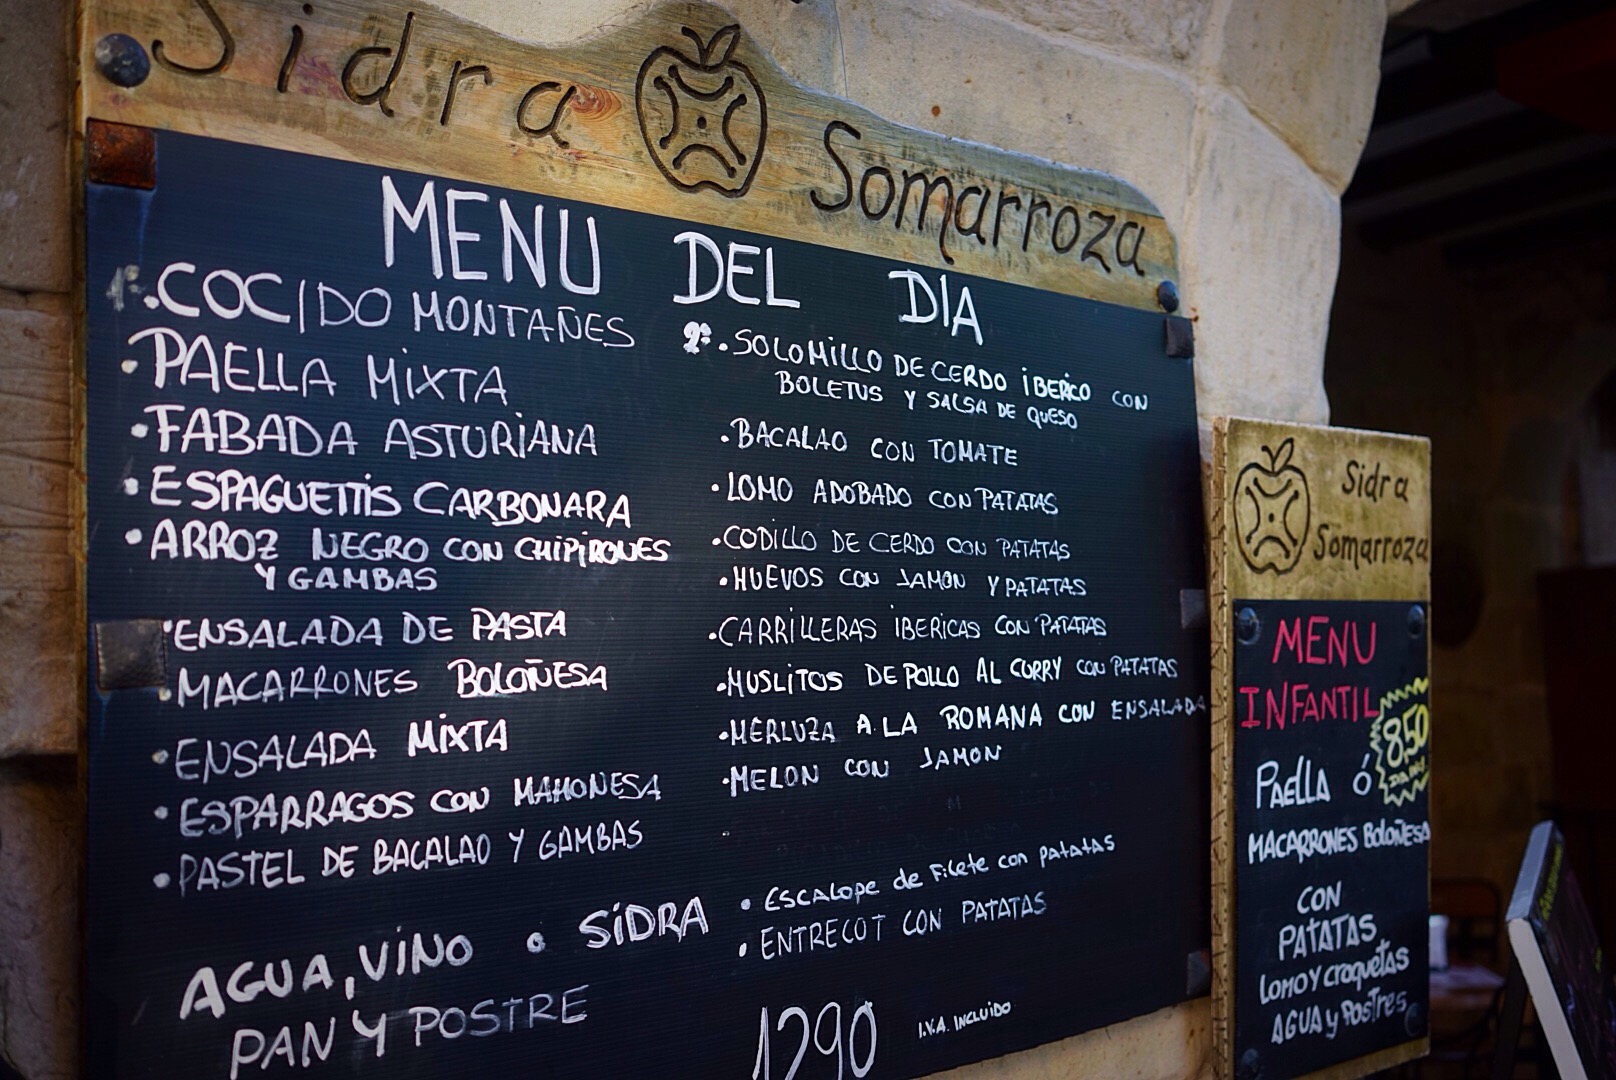 Sidra Somarroza
MENU DEL DIA
1º.COCIDO MONTAÑES
•PAELLA MIXTA
•FABADA ASTURIANA
•ESPAGUETTIS CARBONARA
•ARROZ NEGRO CON CHIPIRONES
Y GAMBAS
•ENSALADA DE PASTA
•MACARRONES BOLOÑESA
•ENSALADA MIXTA
•ESPARRAGOS CON MAHONESA
•PASTEL DE BACALAO Y GAMBAS
AGUA, VINO o SIDRA
PAN Y POSTRE
2º.SOLOMILLO DE CERDO IBERICO CON
BOLETUS Y SALSA DE QUESO
•BACALAO CON TOMATE
•LOMO ADOBADO CON PATATAS
•CODILLO DE CERDO CON PATATAS
•HUEVOS CON JAMON Y PATATAS
•CARRILLERAS IBERICAS CON PATATAS
•MUSLITOS DE POLLO AL CURRY CON PATATAS
•MERLUZA A LA ROMANA CON ENSALADA
•MELON CON JAMON
•ESCALOPE de FILETE con patatas
•ENTRECOT CON PATATAS
1290 I.V.A. INCLUIDO
Sidra
Somarroza
MENU
INFANTIL
850
PAELLA ó
MACARRONES BOLOÑESA
CON
PATATAS
Lomo y croquetas
AGUA y Postres